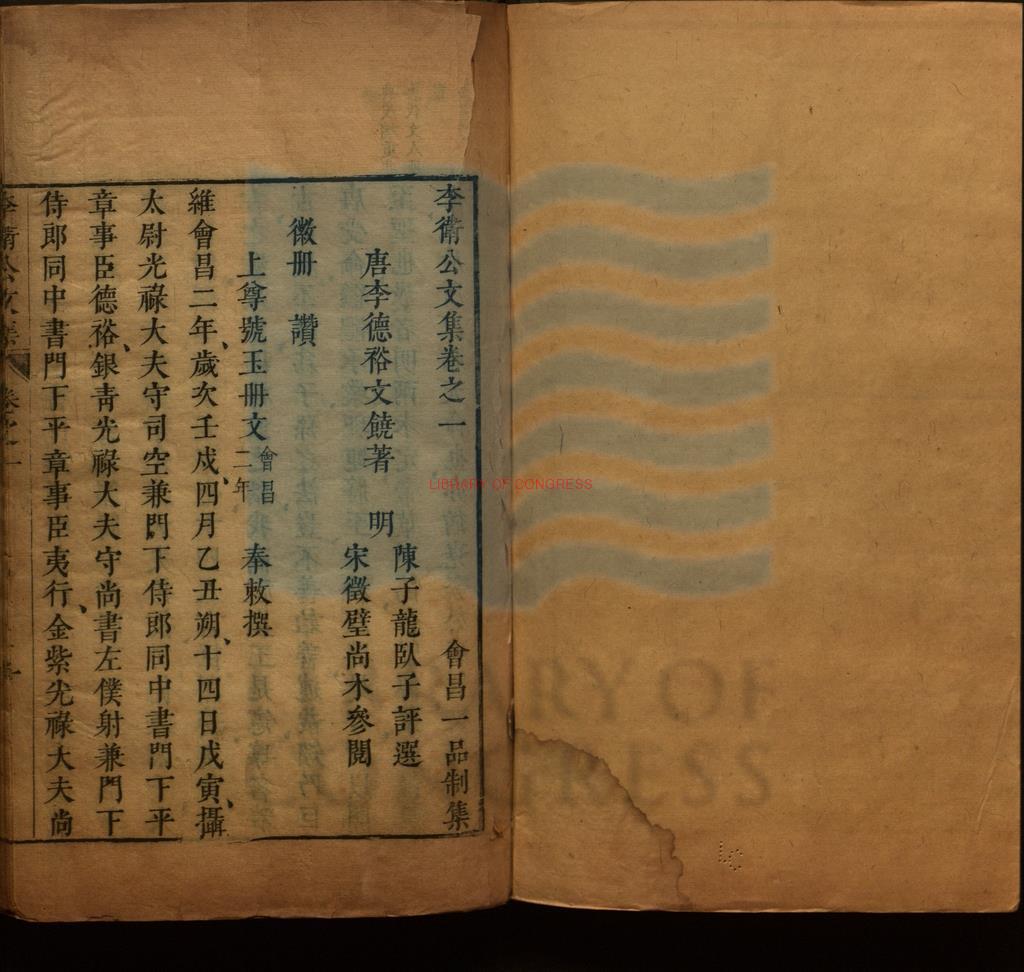 李衛公文集卷之一　會昌一品制集
唐李德裕文饒著　明
陳子龍臥子評選
宋徵璧尚木參閱
徽冊　讚
上尊號玉冊文 會昌二年 奉敕撰
維會昌二年、歲次壬戌、四月乙丑朔、十四日戊寅、攝
太尉光祿大夫守司空兼門下侍郎同中書門下平
章事臣德裕、銀青光祿大夫守尚書左僕射兼門下
侍郎同中書門下平章事臣夷行、金紫光祿大夫尚
LIBRARY OF CONGRESS